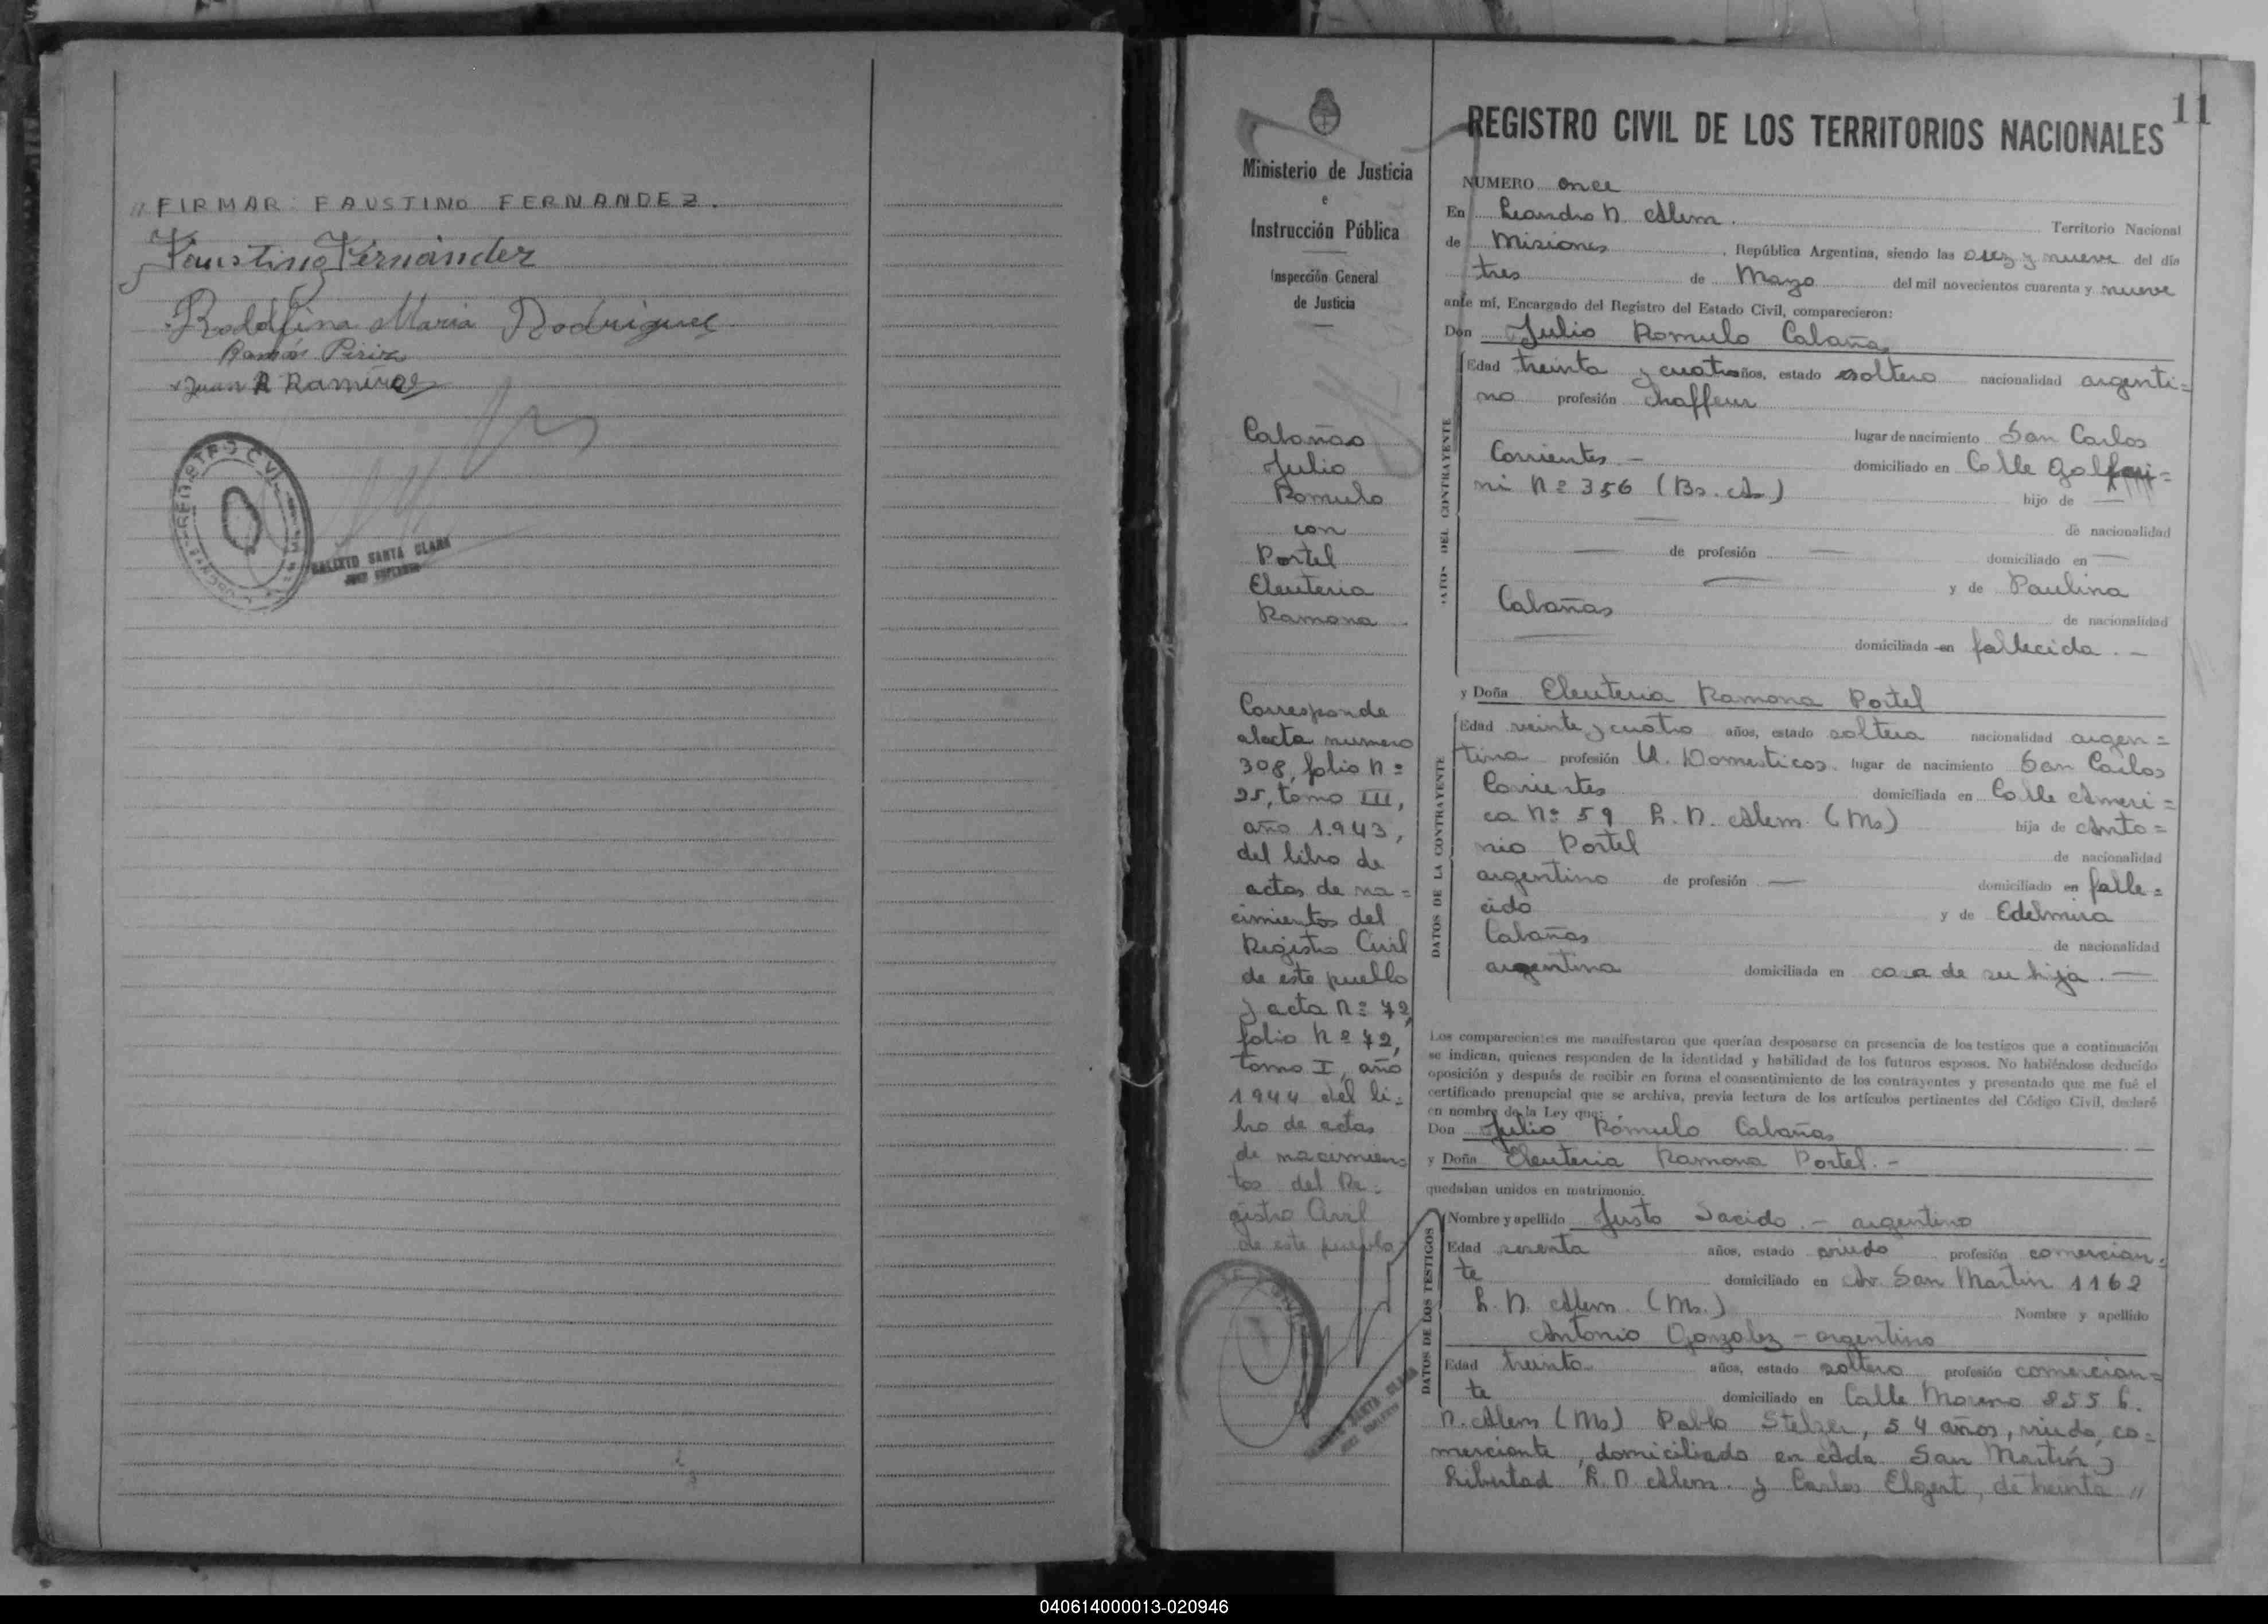 " FIRMAR: FAUSTINO FERNANDEZ.
Faustino Fernández
Rodolfina Maria Rodriguez
Ramón Piriz
Juan R Ramirez
REGISTRO CIVIL
CALIXTO SANTA CLARA
JUEZ SUPLENTE
11
Ministerio de Justicia
e
Instrucción Pública
Inspección General
de Justicia
Cabañas
Julio
Romulo
con
Portel
Eleuteria
Ramona
Corresponde
alacta numero
308, folio Nº
25, tomo III,
año 1.943,
del libro de
actas de na=
cimientos del
Registro Civil
de este pueblo
y acta Nº 72,
folio Nº 72,
tomo I, año
1944 del li=
bro de actas
de nacimien=
tos del Re=
gistro Civil
de este pueblo
SANTA CLARA
REGISTRO CIVIL DE LOS TERRITORIOS NACIONALES
NUMERO once
En Leandro N. Alem. Territorio Nacional
de Misiones, República Argentina, siendo las diez y nueve del día
tres de Mayo del mil novecientos cuarenta y nueve
ante mí, Encargado del Registro del Estado Civil, comparecieron:
Don Julio Romulo Cabañas
DATOS DEL CONTRAYENTE
Edad treinta y cuatro años, estado soltero nacionalidad argenti=
no profesión chaffeur
lugar de nacimiento San Carlos
Corrientes - domiciliado en Calle Golfari=
ni Nº 356 (Bs. As.) hijo de —
— de nacionalidad
— de profesión — domiciliado en —
— y de Paulina
Cabañas de nacionalidad
— domiciliada en fallecida. -
y Doña Eleuteria Ramona Portel
DATOS DE LA CONTRAYENTE
Edad veinte y cuatro años, estado soltera nacionalidad argen=
tina profesión Q. Domesticos. lugar de nacimiento San Carlos
Corrientes domiciliada en Calle Ameri=
ca Nº 59 L. N. Alem. (Ms) hija de Anto=
nio Portel de nacionalidad
argentino de profesión — domiciliado en falle=
cido y de Edelmira
Cabañas de nacionalidad
argentina domiciliada en casa de su hija. —
Los comparecientes me manifestaron que querían desposarse en presencia de los testigos que a continuación
se indican, quienes responden de la identidad y habilidad de los futuros esposos. No habiéndose deducido
oposición y después de recibir en forma el consentimiento de los contrayentes y presentado que me fué el
certificado prenupcial que se archiva, previa lectura de los artículos pertinentes del Código Civil, declaré
en nombre de la Ley que:
Don Julio Rómulo Cabañas
y Doña Eleuteria Ramona Portel. -
quedaban unidos en matrimonio.
DATOS DE LOS TESTIGOS
Nombre y apellido Justo Sacido. - argentino
Edad sesenta años, estado viudo profesión comercian=
te domiciliado en Av. San Martin 1162
L. N. Alem. (Ms.) Nombre y apellido
Antonio Gonzalez - argentino
Edad treinta años, estado soltero profesión comercian=
te domiciliado en Calle Moreno 855 L.
N. Alem (Ms) Pablo Stelzer, 54 años, viudo, co=
merciante, domiciliado en Avda. San Martín y
Libertad L. N. Alem. y Carlos Elgert, de treinta "
040614000013-020946